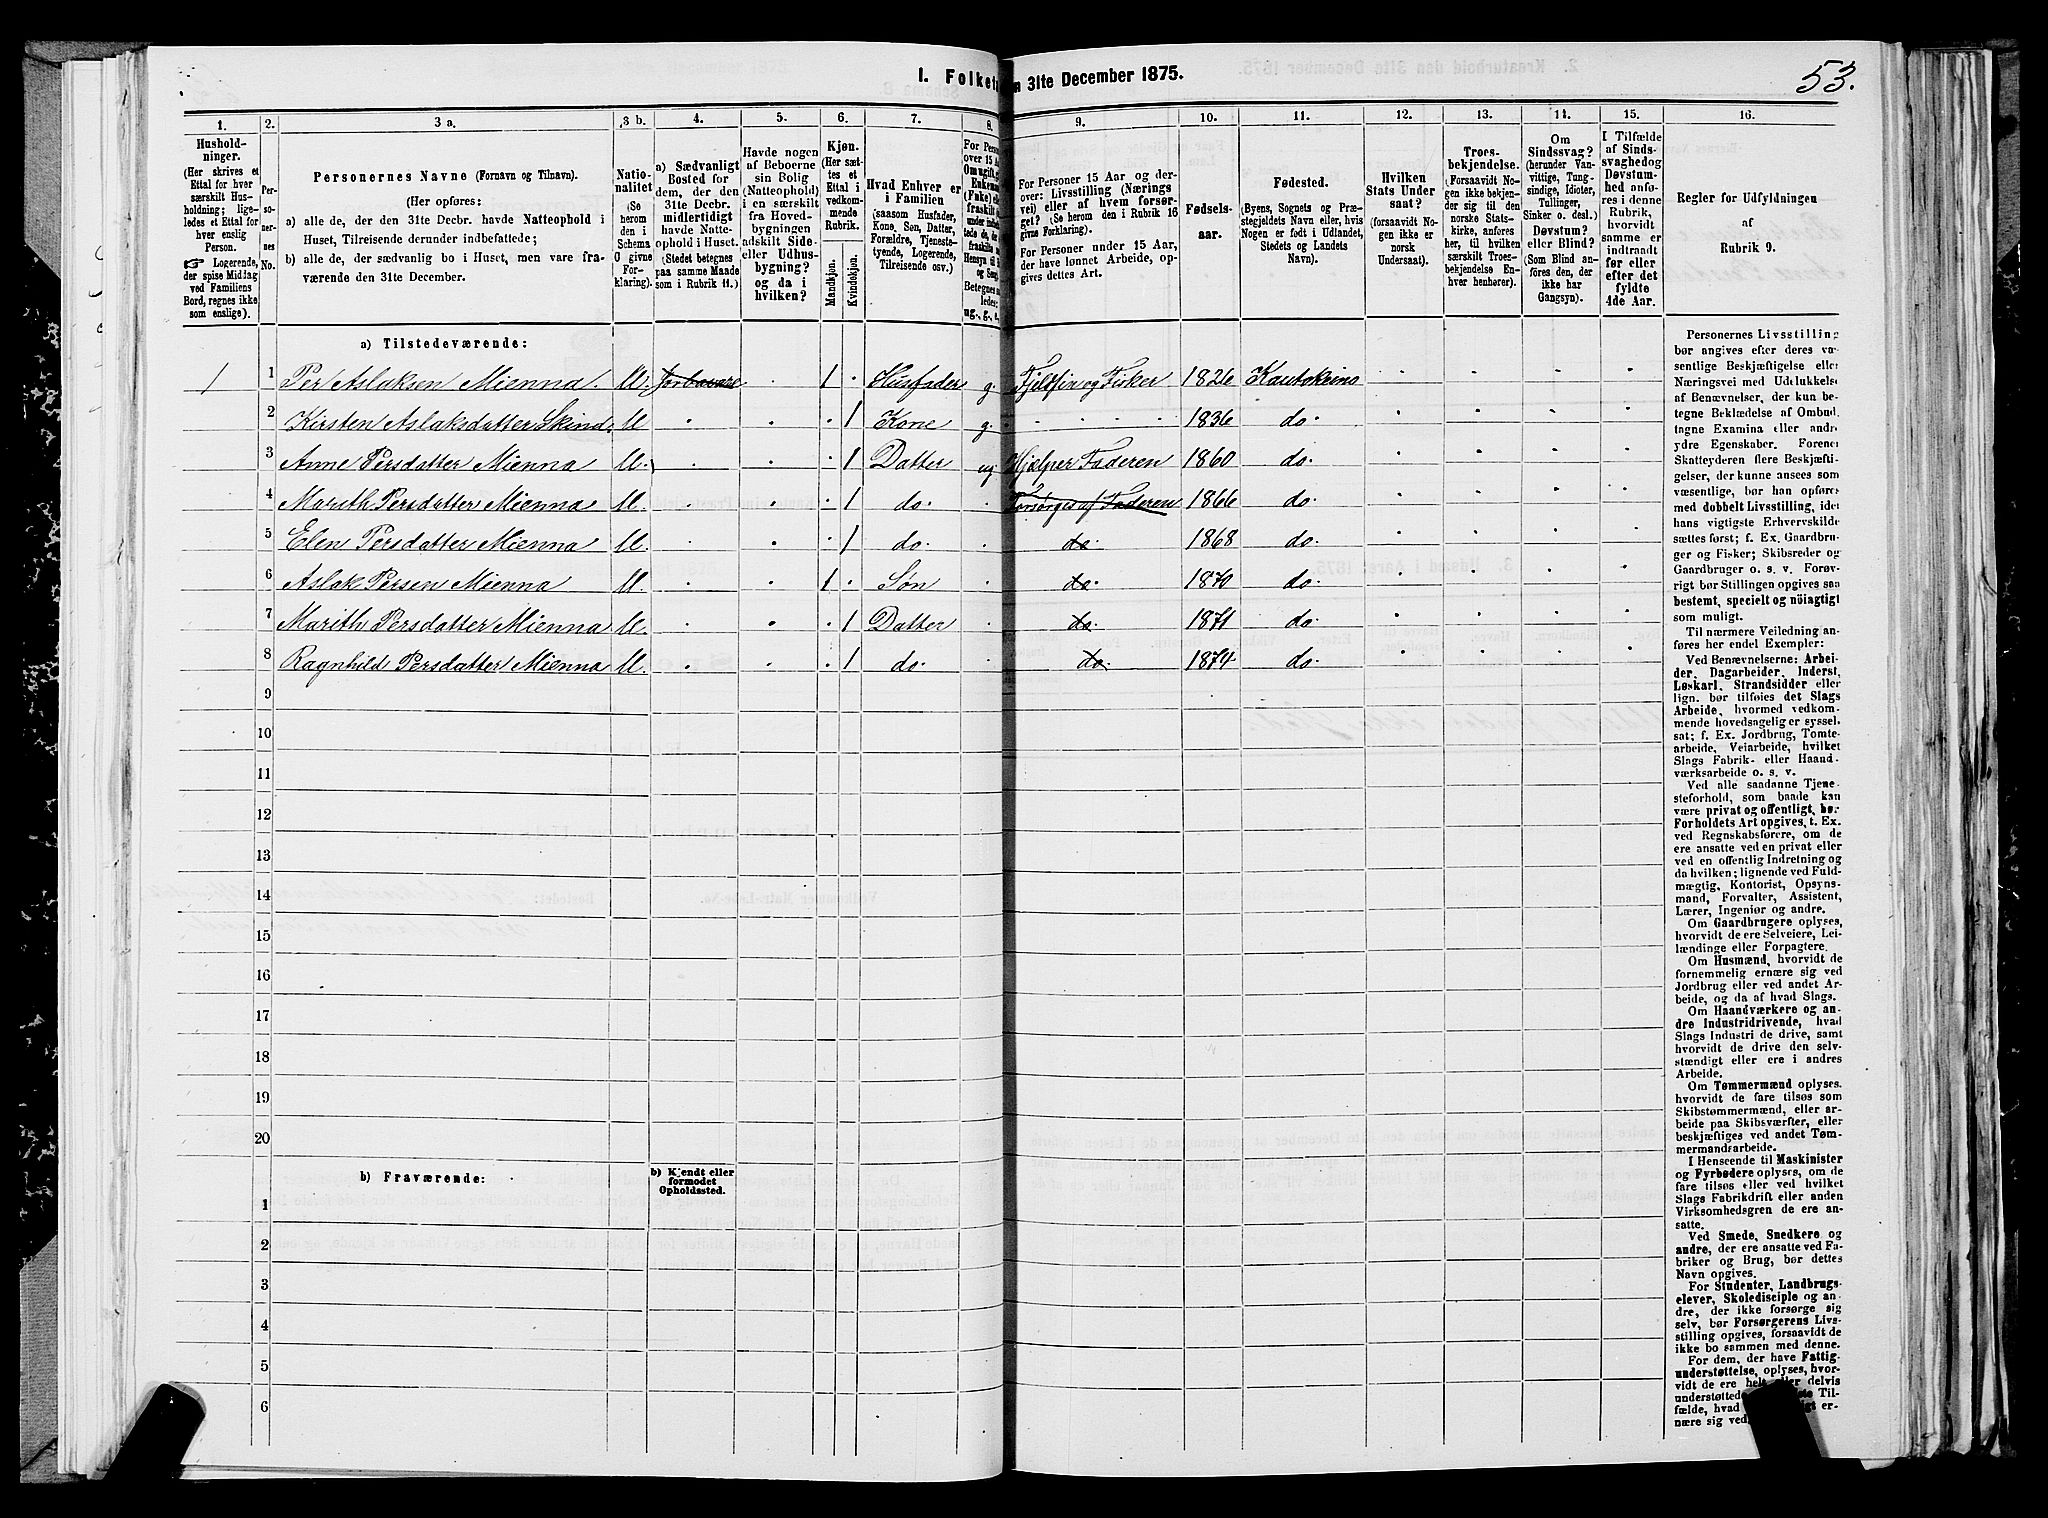 53.
I. Folket
n 31te December 1875.
1. 2. 3 a. 3 b. 4. 5. 6. 7. 8. 9. 10. 11. 12. 13. 14. 15. 16.
Hushold-
ninger.
(Her skrives et
Ettal for hver
særskilt Hus-
holdning; lige-
ledes et Ettal for
hver enslig
Person.
☞ Logerende,
der spise Middag
ved Familiens
Bord, regnes ikke
som enslige).
Per-
so-
ner-
nes
No.
Personernes Navne (Fornavn og Tilnavn).
(Her opføres:
a) alle de, der den 31te Decbr. havde Natteophold i
Huset, Tilreisende derunder indbefattede;
b) alle de, der sædvanlig bo i Huset, men vare fra-
værende den 31te December.
Natio-
nalitet
(Se
herom
den i
Schema
O givne
For-
klaring).
a) Sædvanligt
Bosted for
dem, der den
31te Decbr.
midlertidigt
havde Natte-
ophold i Huset.
(Stedet betegnes
paa samme Maade
som i Rubrik 11.)
Havde nogen
af Beboerne
sin Bolig
(Natteophold)
i en særskilt
fra Hoved-
bygningen
adskilt Side-
eller Udhus-
bygning?
og da i
hvilken?
Kjøn.
(Her sæt-
tes et
Ettal i
vedkom-
mende
Rubrik.
Mandkjøn.
Kvindekjøn.
Hvad Enhver er
i Familien
(saasom Husfader,
Kone, Søn, Datter,
Forældre, Tjeneste-
tyende, Logerende,
Tilreisende osv.)
For Pers
over 15 Aa
Om ugift, g
Enkeman
(Enke) el
fraskilt
Betegnes s
ledes:
ug., g., e,
For Personer 15 Aar og der-
over: Livsstilling (Nærings
vei) eller af hvem forsør-
get? (Se herom den i Rubrik 16
givne Forklaring).
For Personer under 15 Aar,
der have lønnet Arbeide, op-
gives dettes Art.
Fødsels-
aar.
Fødested.
(Byens, Sognets og Præ-
stegjeldets Navn eller, hvis
Nogen er født i Udlandet,
Stedets og Landets
Navn).
Hvilken
Stats Under
saat?
(forsaavidt No-
gen ikke er
norsk
Undersaat).
Troes-
bekjendelse.
(Forsaavidt No-
gen ikke bekjen-
der sig til den
norske Stats-
kirke, anføres
her, til hvilken
særskilt Troes-
bekjendelse En-
hver henhører).
Om
Sindssvag?
(herunder Van-
vittige, Tung-
sindige, Idioter,
Tullinger,
Sinker o. desl.)
Døvstum?
eller Blind?
(Som Blind an-
føres den, der
ikke har
Gangsyn).
I Tilfælde
af Sinds-
svaghed og
Døvstum-
hed anfø-
res i denne
Rubrik,
hvorvidt
samme er
indtraadt
før eller
efter det
fyldte
4de Aar.
Regler for Udfyldningen
af
Rubrik 9.
a) Tilstedeværende:
1 1 Per Aslaksen Mienna. 1 Husfader g. Fjeldfin og Fisker 1826 Kautokeino
2 Kirsten Aslaksdatter Skind. 1 Kone g. 1836 do.
3 Anne Persdatter Mienna 1 Datter ug Hjælper Faderen 1860 do.
4 Marith Persdatter Mienna 1 do. Forsørges af Faderen 1866 do.
5 Elen Persdatter Mienna 1 do. do. 1868 do.
6 Aslak Persen Mienna 1 Søn do. 1870 do.
7 Marith Persdatter Mienna 1 Datter do. 1871 do.
8 Ragnhild Persdatter Mienna 1 do. do. 1874 do.
9
10
11
12
13
14
15
16
17
18
19
20
b) Fraværende:
b) Kjendt eller
formodet
Opholdssted.
1
2
3
4
5
6
Personernes Livsstilling
bør angives efter deres væ-
sentlige Beskjæftigelse eller
Næringsvei med Udelukkelse
af Benævnelser, der kun be-
tegne Beklædelse af Ombud,
tagne Examina eller andre
ydre Egenskaber. Forener
Skatteyderen flere Beskjæfti-
gelser, der kunne ansees som
væsentlige, bør han opføres
med dobbelt Livsstilling, idet
hans vigtigste Erhvervskilde
sættes først; f. Ex. Gaardbru-
ger og Fisker; Skibsreder og
Gaardbruger o. s. v. Forøv-
rigt bør Stillingen opgives saa
bestemt, specielt og nöiagtigt
som muligt.
Til nærmere Veiledning an-
føres her endel Exempler:
Ved Benævnelserne: Arbei-
der, Dagarbeider, Inderst,
Løskarl, Strandsidder eller
lign. bør tilføies det Slags
Arbeide, hvormed vedkom-
mende hovedsagelig er syssel-
sat; f. Ex. Jordbrug, Tomte-
arbeide, Veiarbeide, hvilket
Slags Fabrik- eller Haand-
værksarbeide o. s. v.
Ved alle saadanne Tjene-
steforhold, som baade kan
være privat og offentligt, bør
Forholdets Art opgives, f. Ex.
ved Regnskabsførere, om de
ere ansatte ved en privat eller
ved en offentlig Indretning og
da hvilken; lignende ved Fuld-
mægtig, Kontorist, Opsyns-
mand, Forvalter, Assistent,
Lærer, Ingeniør og andre.
Om Gaardbrugere oplyses,
hvorvidt de ere Selveiere, Lei-
lændinge eller Forpagtere.
Om Husmænd, hvorvidt de
fornemmelig ernære sig ved
Jordbrug eller ved andet Ar-
beide, og da af hvad Slags.
Om Haandværkere og an-
dre Industridrivende, hvad
Slags Industri de drive, samt
hvorvidt de drive den selv-
stændigt eller ere i andres
Arbeide.
Om Tømmermænd oplyses,
hvorvidt de fare tilsøs som
Skibstømmermænd, eller ar-
beide paa Skibsværfter, eller
beskjæftiges ved andet Tøm-
mermandsarbeide.
I Henseende til Maskinister
og Fyrbødere oplyses, om de
fare tilsøs eller ved hvilket
Slags Fabrikdrift eller anden
Virksomhedsgren de ere an-
satte.
Ved Smede, Snedkere og
andre, der ere ansatte ved Fa-
briker og Brug, bør dettes
Navn opgives.
For Studenter, Landbrugs-
elever, Skoledisciple og an-
dre, der ikke forsørge sig
selv, bør Forsørgerens Livs-
stilling opgives, forsaavidt de
ikke bo sammen med denne.
For dem, der have Fattig-
understøttelse, oplyses, hvor-
vidt de ere helt eller delvis
understøttede
fælde, hvad
nære sig ved.